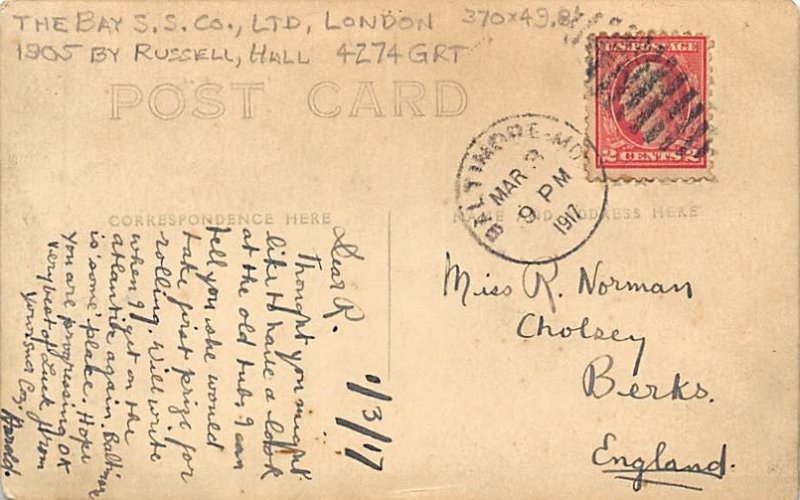 THE BAY S.S. CO., LTD, LONDON 370x49.8
1905 BY RUSSELL, HALL 4274 GRT
POST CARD
U.S. POSTAGE
2 CENTS 2
BALTIMORE-MD
MAR 3
9 PM
1917
CORRESPONDENCE HERE
NAME AND ADDRESS HERE
1/3/17
Dear R.
Thought you might
like to have a look
at the old tub, I can
tell you she would
take first prize for
rolling. Will write
when I get on the
atlantic again. Baltimore
is 'some' place. Hope
you are progressing OK
very best of Luck from
your Coz,
Harold.
Miss R. Norman
Cholsey
Berks.
England.